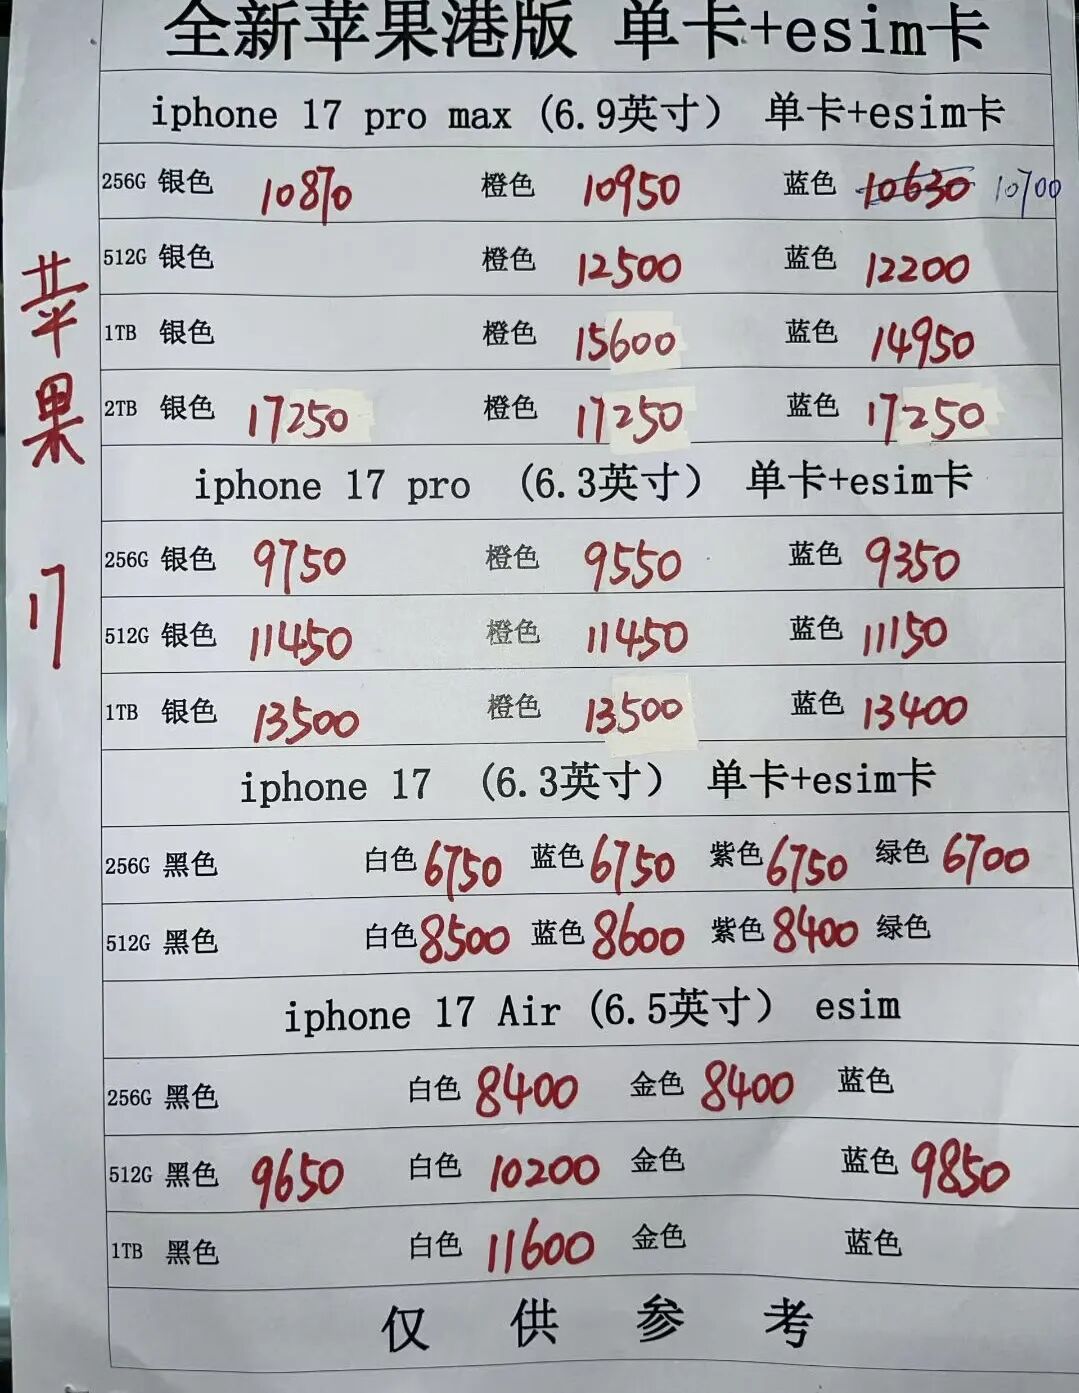 全新苹果港版 单卡+esim卡
iphone 17 pro max (6.9英寸) 单卡+esim卡
256G 银色 10870 橙色 10950 蓝色 10630 10700
512G 银色 橙色 12500 蓝色 12200
1TB 银色 橙色 15600 蓝色 14950
2TB 银色 17250 橙色 17250 蓝色 17250
iphone 17 pro (6.3英寸) 单卡+esim卡
256G 银色 9750 橙色 9550 蓝色 9350
512G 银色 11450 橙色 11450 蓝色 11150
1TB 银色 13500 橙色 13500 蓝色 13400
iphone 17 (6.3英寸) 单卡+esim卡
256G 黑色 白色 6750 蓝色 6750 紫色 6750 绿色 6700
512G 黑色 白色 8500 蓝色 8600 紫色 8400 绿色
iphone 17 Air (6.5英寸) esim
256G 黑色 白色 8400 金色 8400 蓝色
512G 黑色 9650 白色 10200 金色 蓝色 9850
1TB 黑色 白色 11600 金色 蓝色
仅供参考
苹果17